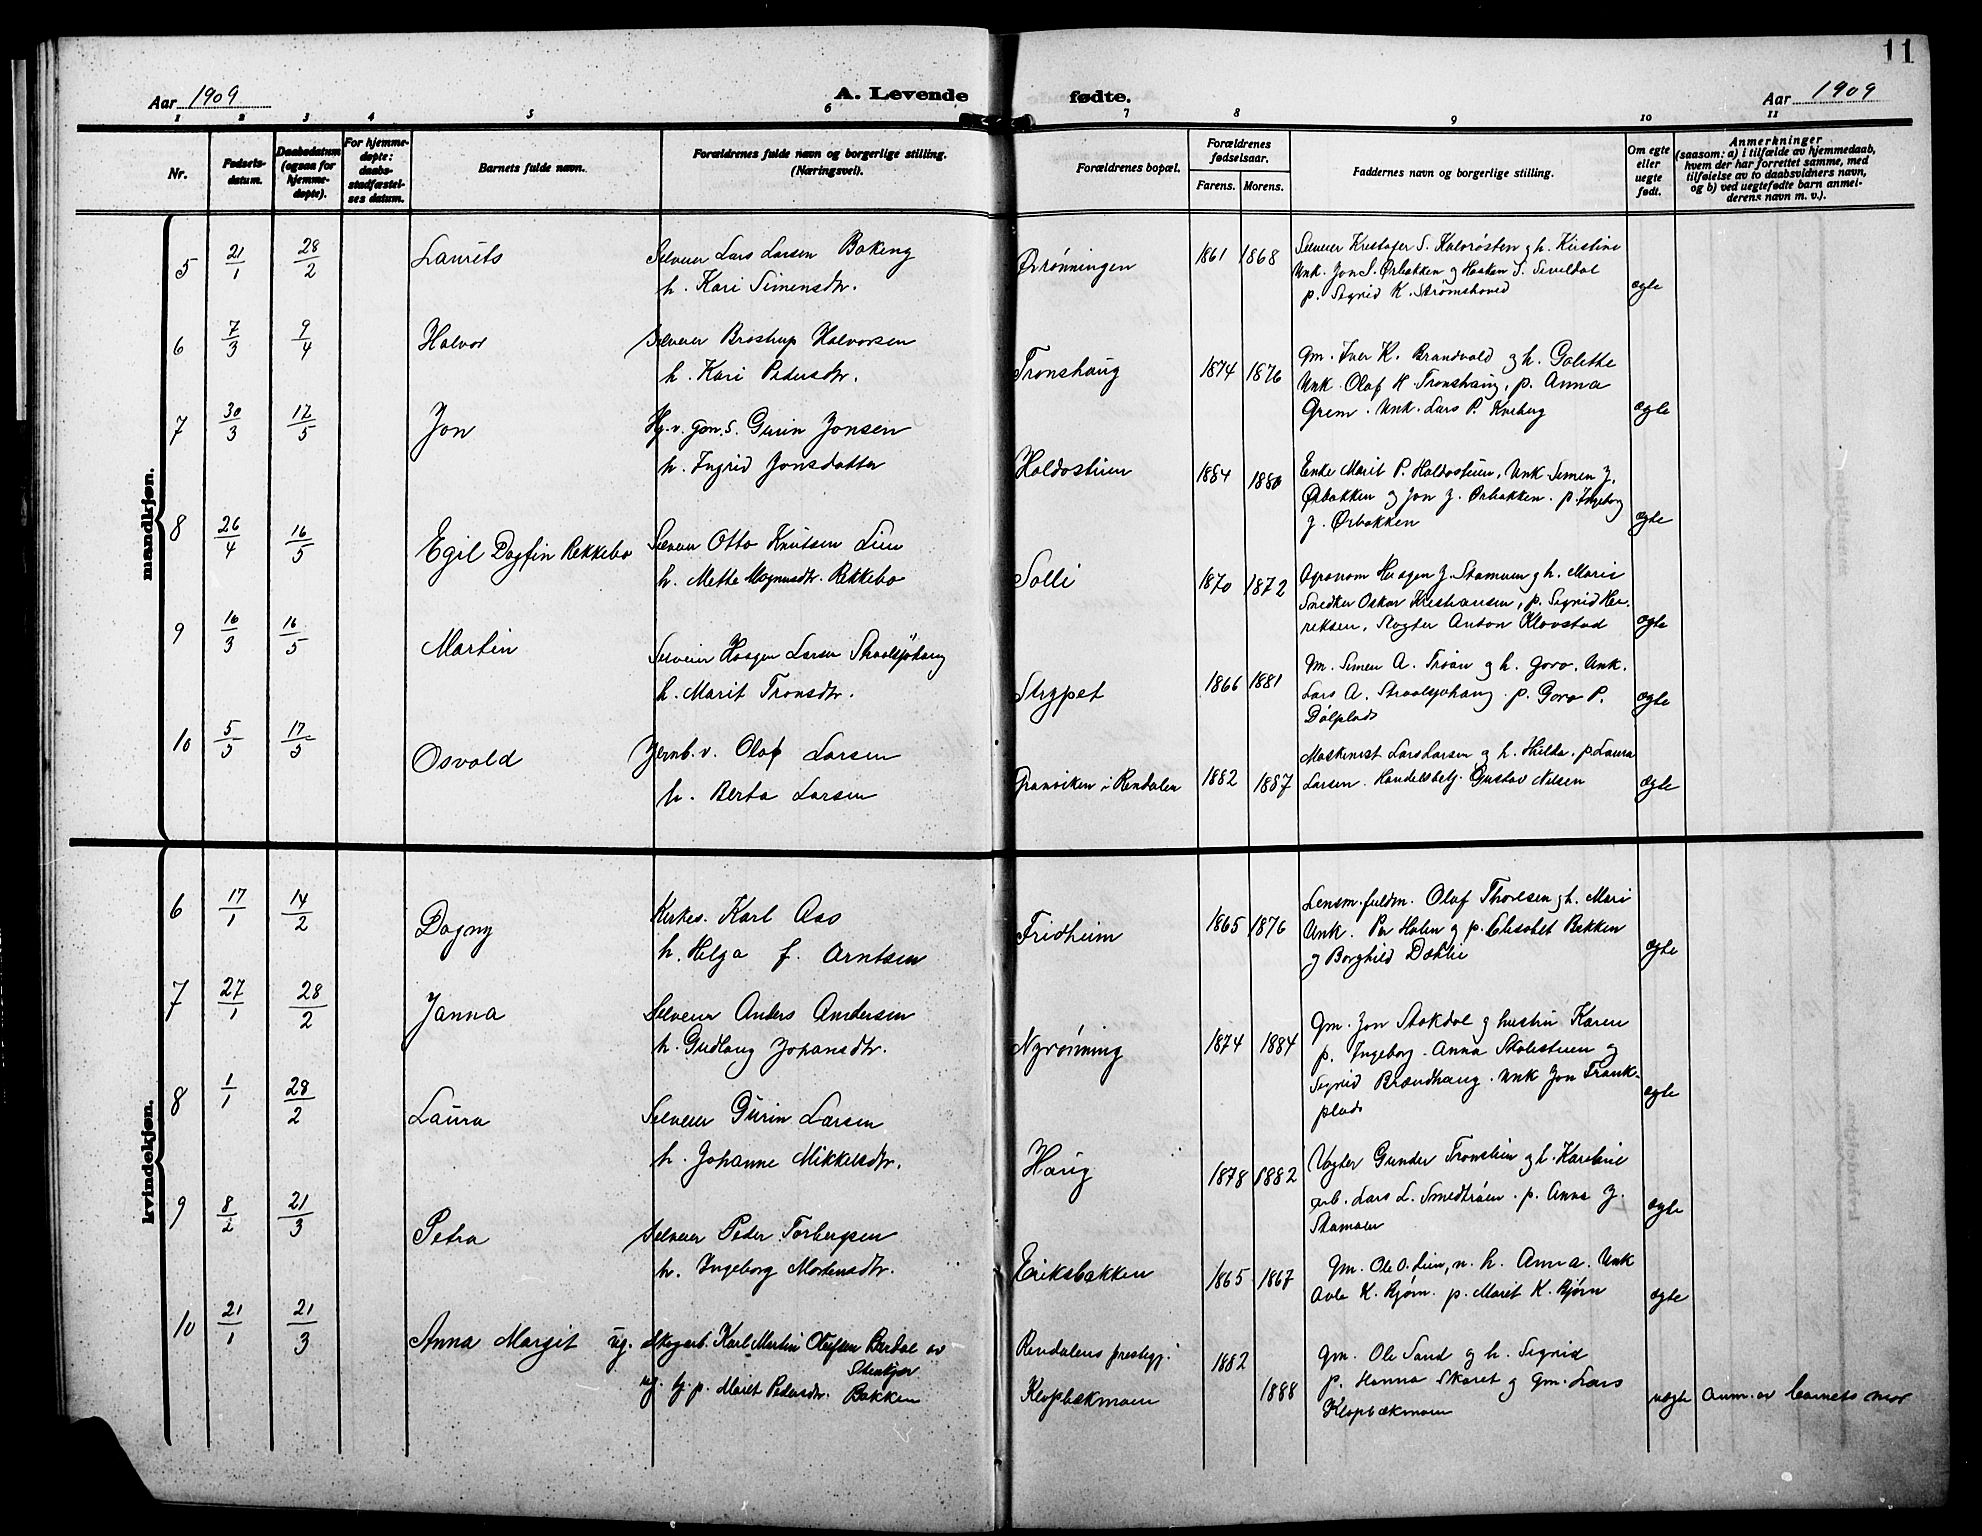 11
Aar 1909
A. Levende fødte.
Aar 1909
1 2 3 4 5 6 7 8 9 10 11
Nr.
Fødsels-
datum.
Daabsdatum
(ogsaa for
hjemme-
døpte).
For hjemme-
døpte:
daabs-
stadfæstel-
ses datum.
Barnets fulde navn.
Forældrenes fulde navn og borgerlige stilling.
(Næringsvei).
Forældrenes bopæl.
Forældrenes
fødselsaar.
Farens. Morens.
Faddernes navn og borgerlige stilling.
Om egte
eller
uegte
født.
Anmerkninger
(saasom: a) i tilfælde av hjemmedaab,
hvem der har forrettet samme, med
tilføielse av to daabsvidners navn,
og b) ved uegtefødte barn anmel-
derens navn m. v.).
mandkjøn.
5 21/1 28/2 Laurits
Selveier Lars Larsen Bakeng
h. Kari Simensdtr.
Ørrønningen 1861 1868
Selveier Kristofer S. Kolvrøsten og h. Kirstine
Unk. Jon S. Ørbakken og Haaken S. Sevildal
p. Sigrid K. Strømshoved
egte
6 7/3 9/4 Halvor
Selveier Brostrup Halvorsen
h. Kari Pedersdtr.
Tronshaug 1874 1876
Gm. Iver K. Brandvold og h. Golethe
Unk. Olaf H. Tronshaug, p. Anna
Grem. Unk. Lars P. Kveberg
egte
7 30/3 17/5 Jon
Hg.v. Gm.s. Gurin Jonsen
h. Ingrid Jonsdatter
Haldostuen 1884 1880
Enke Marit P. Haldostuen, Unk Simen J.
Ørbakken og Jon J. Ørbakken. p. Ingeborg
J. Ørbakken
egte
8 26/4 16/5 Egil Dagfin Rekkebo
Selveier Otto Knutsen Lien
h. Mette Magnusdtr. Rekkebo
Solli 1870 1872
Agronom Haagen J. Stamoen og h. Marie
Snedker Oskar Kristiansen, p. Sigrid Hen-
riksen, Slagter Anton Klovstad
egte
9 16/3 16/5 Martin
Selveier Haagen Larsen Straalsjøhaug
h. Marit Tronsdtr.
Strypet 1866 1881
Gm. Simen A. Trøen og h. Goro. Unk.
Lars A. Straalsjøhaug. p. Goro P.
Dølplads
egte
10 5/5 17/5 Osvald
Jernb.v. Olaf Larsen
h. Berta Larsen
Granviken i Rendalen 1882 1887
Maskinist Lars Larsen og h. Hilda, p Laura
Larsen. Handelsbetj. Gustav Nilsen
egte
kvindekjøn.
6 17/1 14/2 Dagny
Kirkes. Karl Aas
h. Helga f. Arntsen
Fridheim 1865 1876
Lensm.fuldm. Olaf Thoresen og h. Mari
Unk. Per Holen og p. Elisabet Bakken
og Borghild Dæhlie
egte
7 27/1 28/2 Janna
Selveier Anders Andersen
h. Gudlaug Johansdtr.
Nyrønning 1874 1884
Gm. Jon Stokdal og hustru Karen
p. Ingeborg Anna Skolestuen og
Sigrid Brændhaug. Unk Jon Frank-
plads
egte
8 1/1 28/2 Laura
Selveier Gurin Larsen
h. Johanne Mikkelsdtr.
Haug 1878 1882
Vogter Gunder Tronslien og h. Karoline
arb. Lars L. Smedtrøen. p. Anna J.
Stamoen
egte
9 8/2 21/3 Petra
Selveier Peder Torbergsen
h. Ingeborg Mortensdtr.
Eriksbakken 1865 1867
Gm. Ole O. Lien, n. h. Anna. Unk
Avle K. Bjørn. p. Marit K. Bjørn
egte
10 21/1 21/3 Anna Margit
ug. Skogarb. Karl Martin Olufsen Berdal av
Stenkjær
ug. tj. p. Marit Pedersdtr. Bakken
Rendalens prestegj. 1882
Klopbækmoen 1888
Gm. Ole Sand og h. Sigrid
p. Hanna Skaret og Gm. Lars
Klopbækmoen
uegte
Anm. av barnets mor